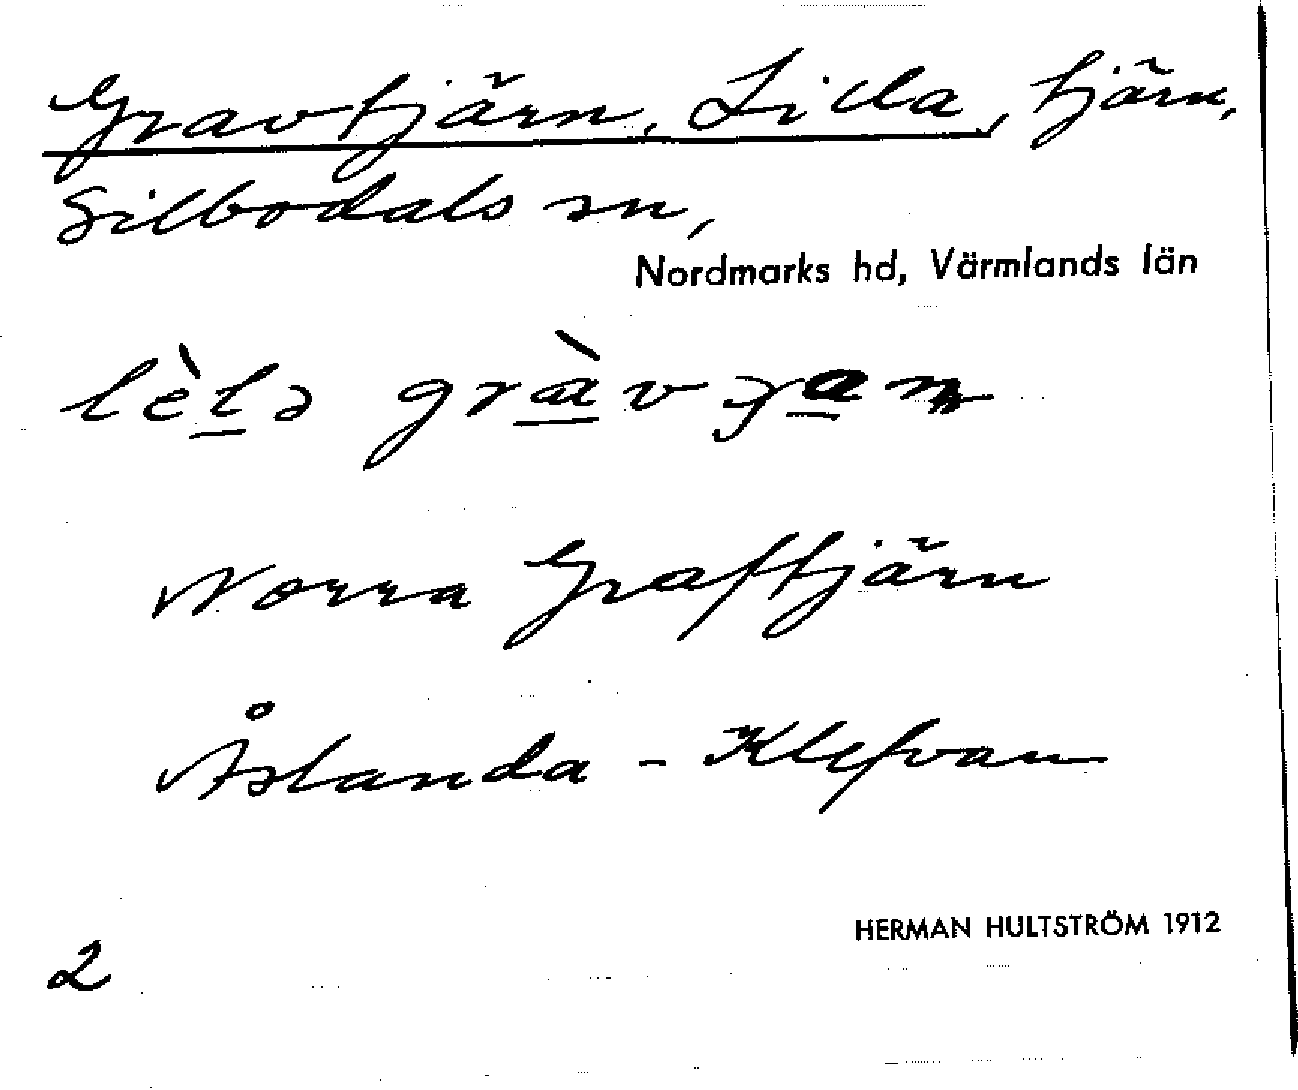 Gravtjärn, Lilla, tjärn,
Silbodals sn,
Nordmarks hd, Värmlands län
Norra Graftjärn
Åslanda - Klefvan
HERMAN HULTSTRÖM 1912
2